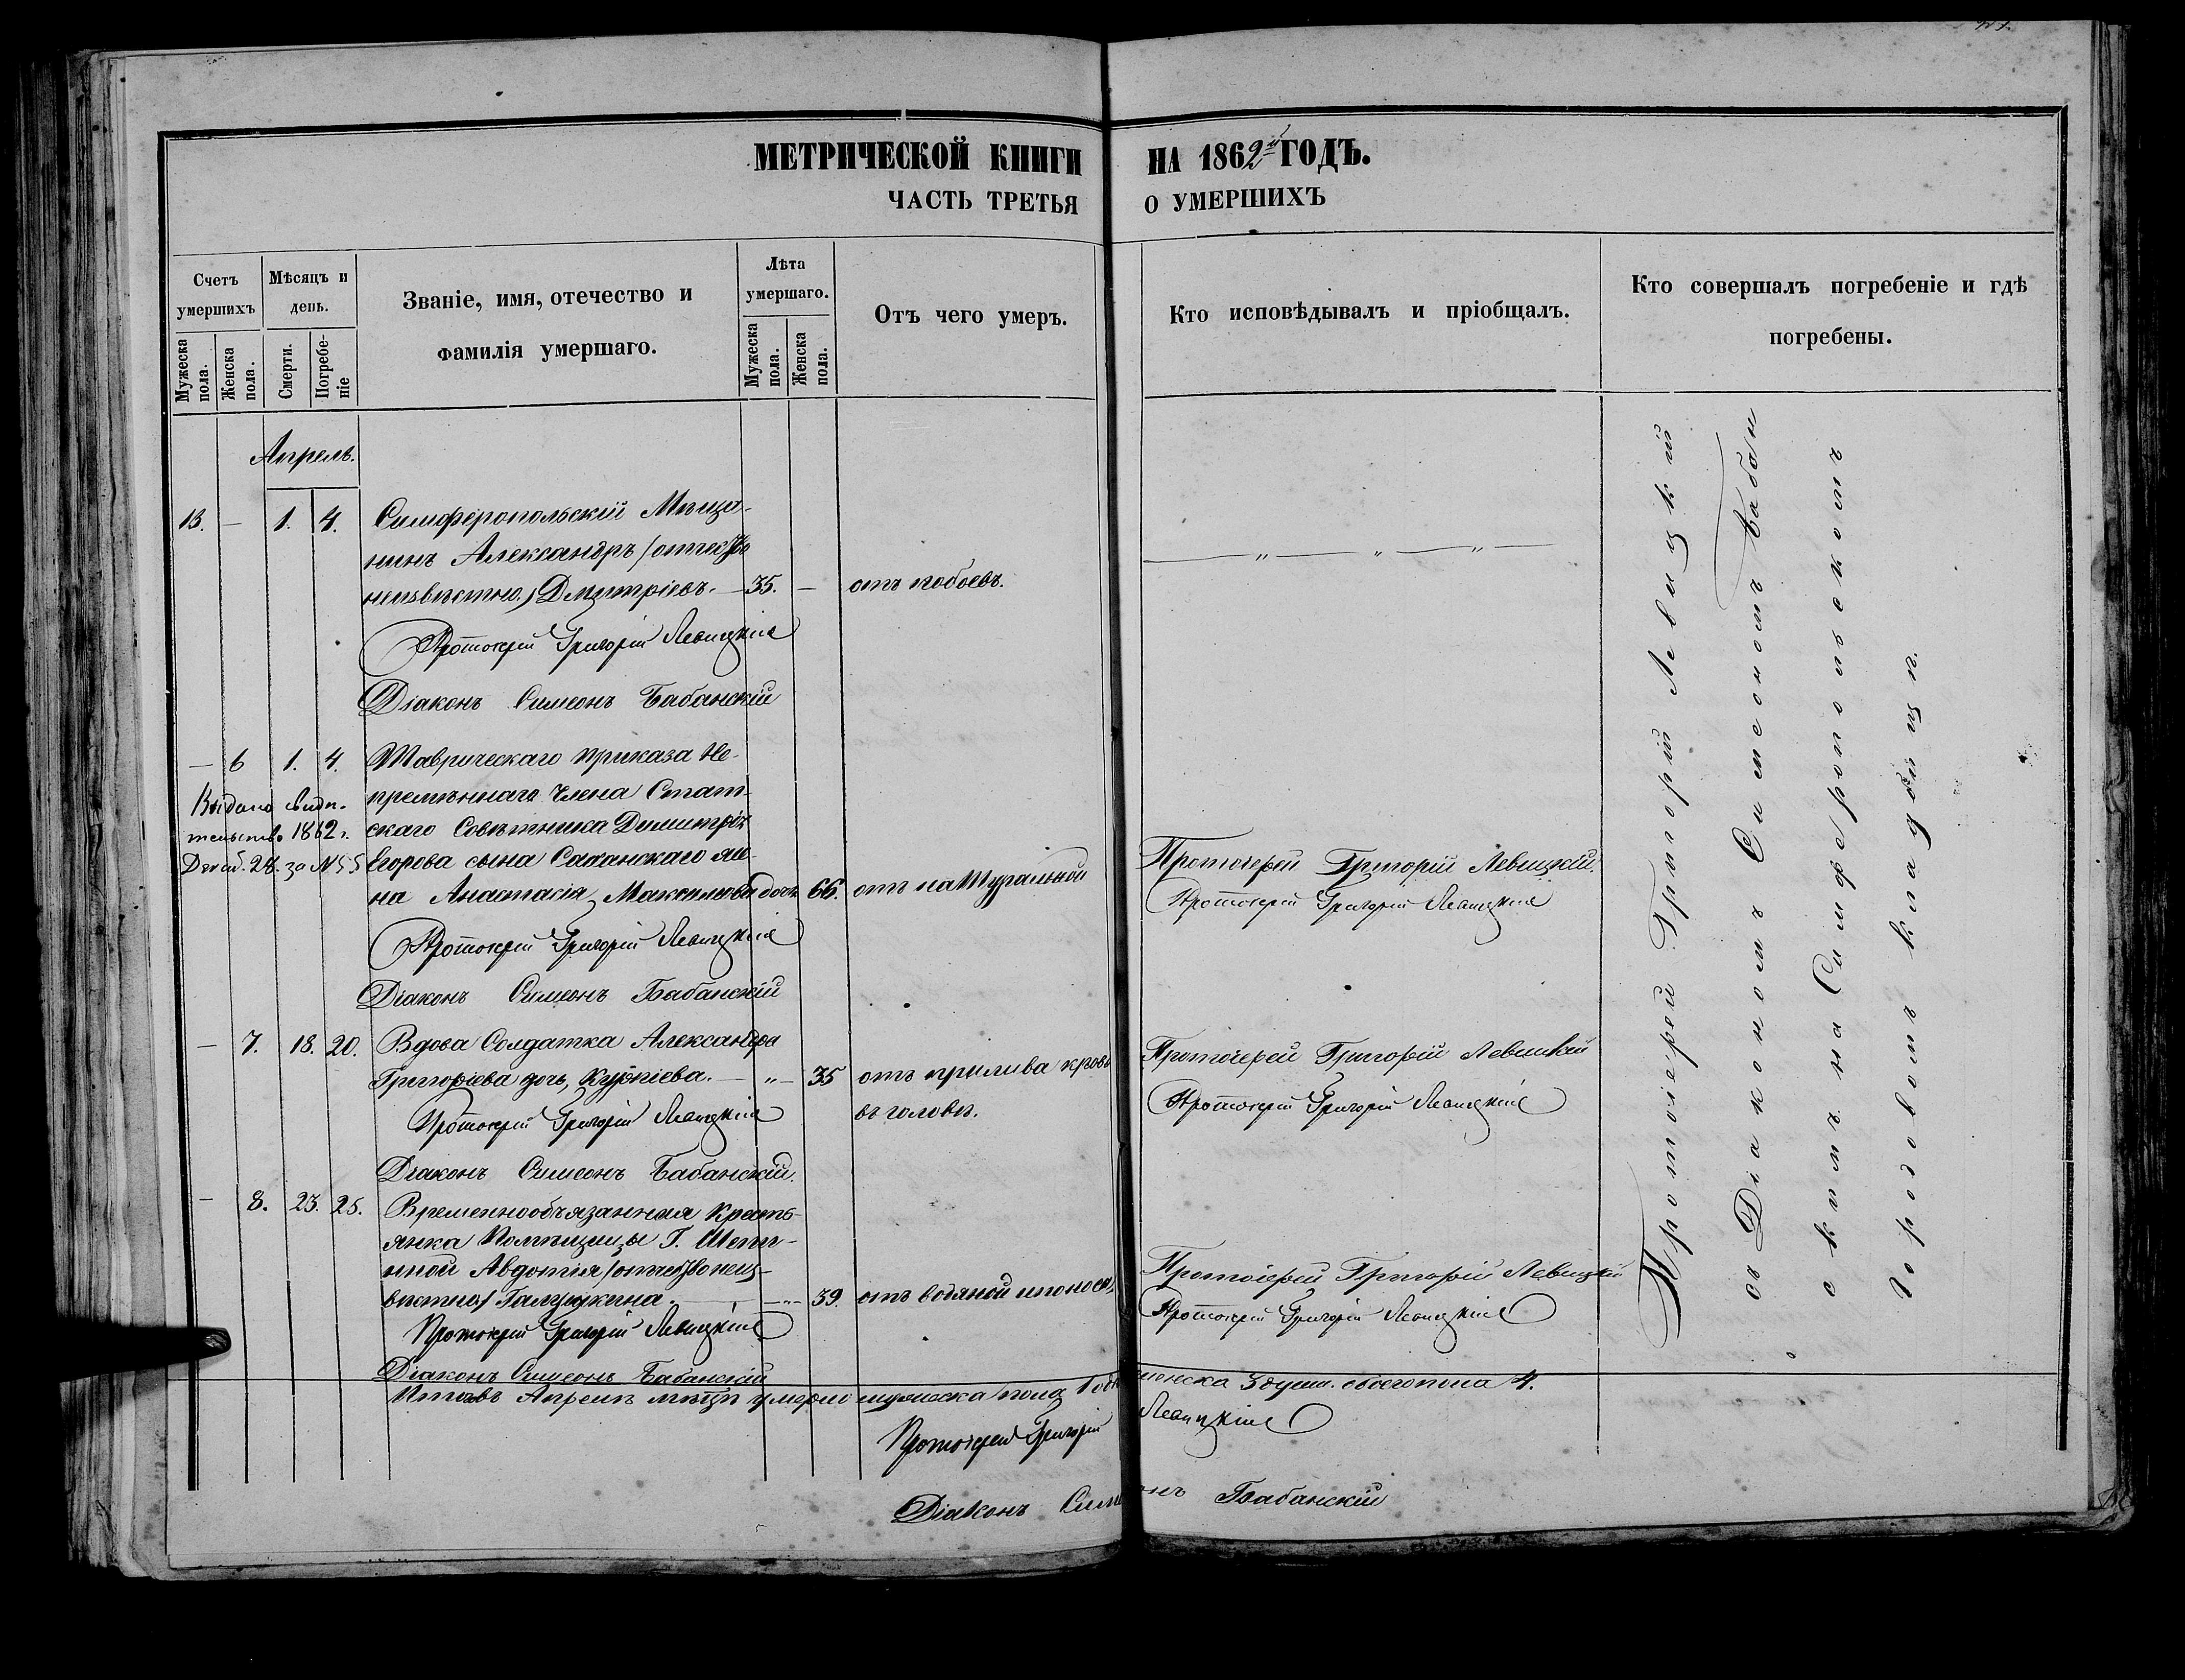 МЕТРИЧЕСКОЙ КНИГИ НА 1862й ГОДЪ.
ЧАСТЬ ТРЕТЬЯ О УМЕРШИХЪ
Счетъ умершихъ
Мужеска пола.
Женска пола.
Мѣсяцъ и день.
Смерти.
Погребеніе
Званіе, имя, отечество и фамилія умершаго.
Лѣта умершаго.
Мужеска пола.
Женска пола.
Отъ чего умеръ.
Кто исповѣдывалъ и пріобщалъ.
Кто совершалъ погребеніе и гдѣ погребены.
Апрель.
13. — 1. 4. Симферопольскій Мѣща-
нинъ Александръ (отчество
неизвѣстно.) Дмитріевъ. — 35. — отъ побоевъ.
Протоіерей Григорій Левицкій
Діаконъ Симеонъ Бабанскій
— 6 1. 4. Таврическаго приказа Не-
премѣннаго Члена Стат-
скаго Совѣтника Димитрія
Егорова сына
на Анастасія Максимова дочь 66. отъ натуральной
Выдано свидѣ-
тельство 1862 г.
Декаб. 28. за № 55
Протоіерей Григорій Левицкій.
Протоіерей Григорій Левицкій
Протоіерей Григорій Левицкій
Діаконъ Симеонъ Бабанскій
— 7. 18. 20. Вдова Солдатка Александра
Григоріева дочь, — „ — 35 отъ прилива крови
въ головѣ.
Протоіерей Григорій Левицкій
Протоіерей Григорій Левицкій
Протоіерей Григорій Левицкій
Діаконъ Симеонъ Бабанскій.
— 8. 23. 25. Временнообязанная Кресть-
янка Помѣщицы Г.
Авдотія (отчество неиз-
вѣстно) Галушкина. — „ — 39. отъ водяной и поноса,
Протоіерей Григорій Левицкій
Протоіерей Григорій Левицкій
Протоіерей Григорій Левицкій
Діаконъ Симеонъ Бабанскій
Итого въ Апрелѣ мѣсяцѣ умерло мужеска пола 1 женска 3 душ. обоего пола 4.
Протоіерей Григорій Левицкій
Діаконъ Симеонъ Бабанскій
Протоіерей Григорій Левицкій
съ Діакономъ Симеономъ Бабан
скимъ на Симферопольскомъ
Городовомъ кладбищѣ.